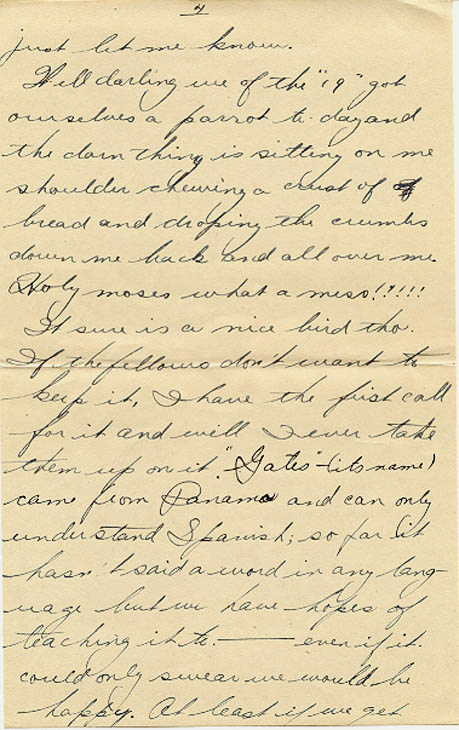 4
just let me know.
Well darling we of the "19" got
ourselves a parrot to-day and
the darn thing is sitting on me
shoulder chewing a crust of of
bread and droping the crumbs
down me back and all over me.
Holy moses what a mess!!?!!!
It sure is a nice bird tho.
If the fellows don't want to
keep it, I have the first call
for it and will I ever take
them up on it. "Gates"-(its name)
came from Panama and can only
understand Spanish; so far it
hasn't said a word in any lang-
uage but we have hopes of
teaching it to. —— even if it
could only swear we would be
happy. At least if we get